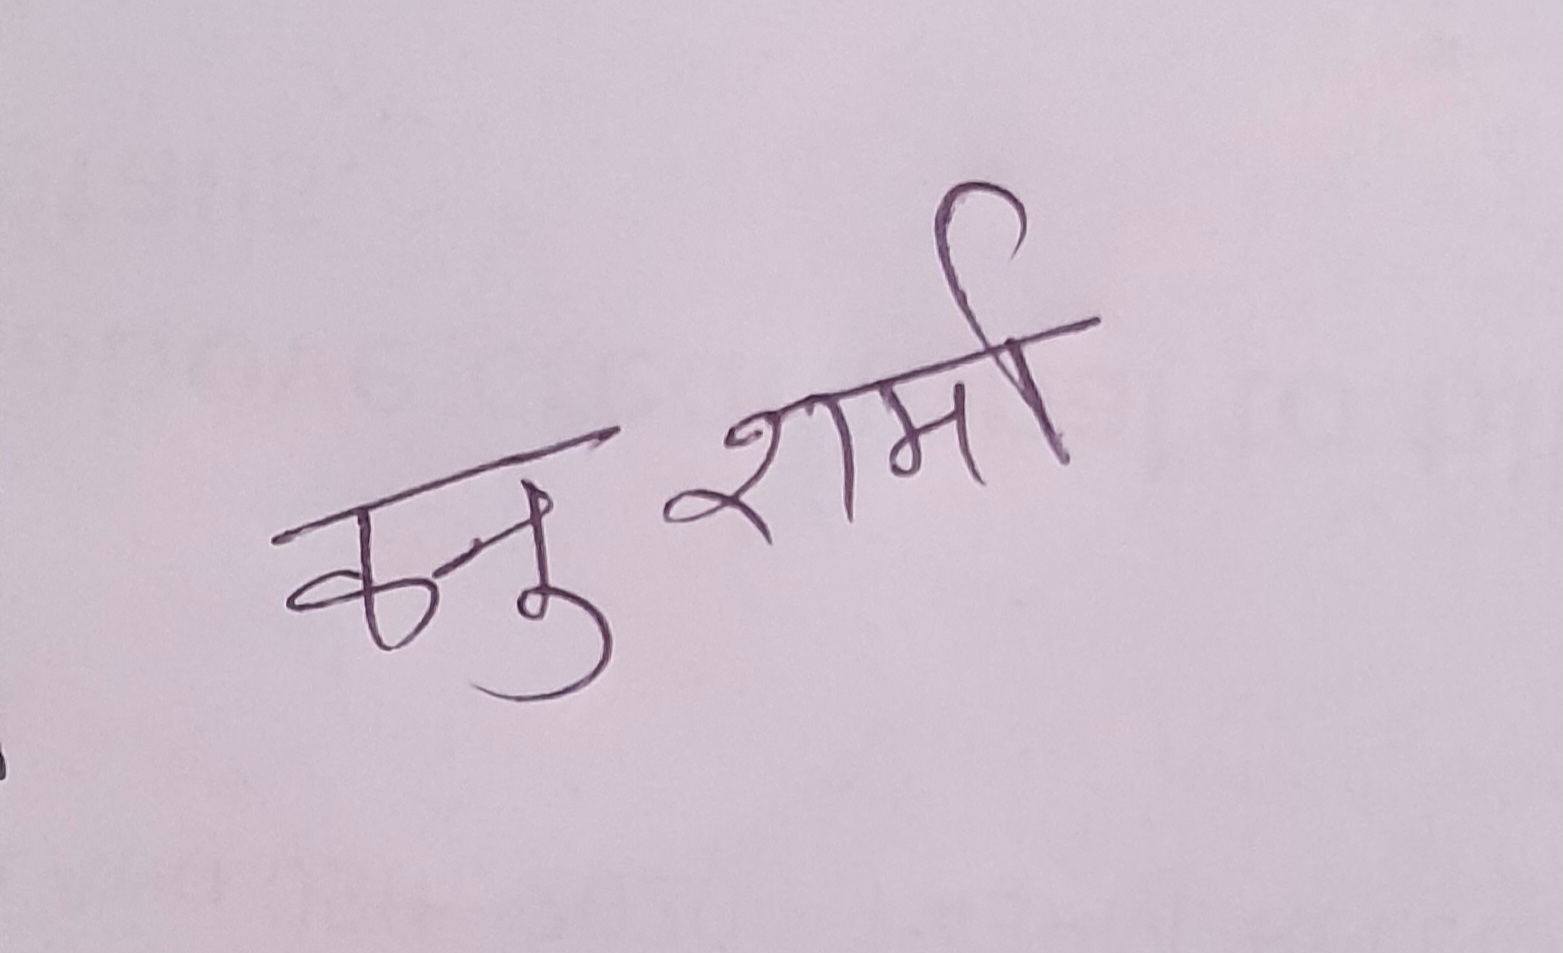 कनु शर्मा